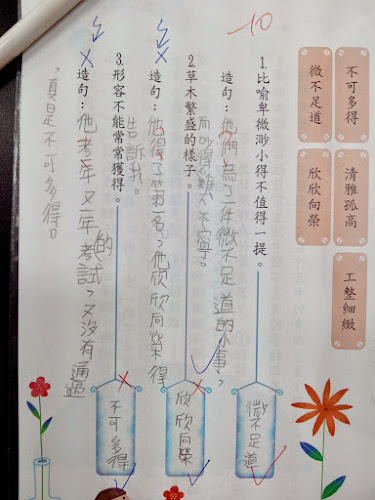 不可多得
微不足道
清雅孤高
欣欣向榮
工整細緻
10
1.比喻卑微渺小得不值得一提。
微不足道
造句：他們為了一件微不足道的小事，
而吵得雞犬不寧。
2.草木繁盛的樣子。
欣欣向榮
造句：他得了第一名，他欣欣向榮得
告訴我。
3.形容不能常常獲得。
不可多得
造句：他考年又一年的考試，又沒有通過
，真是不可多得。